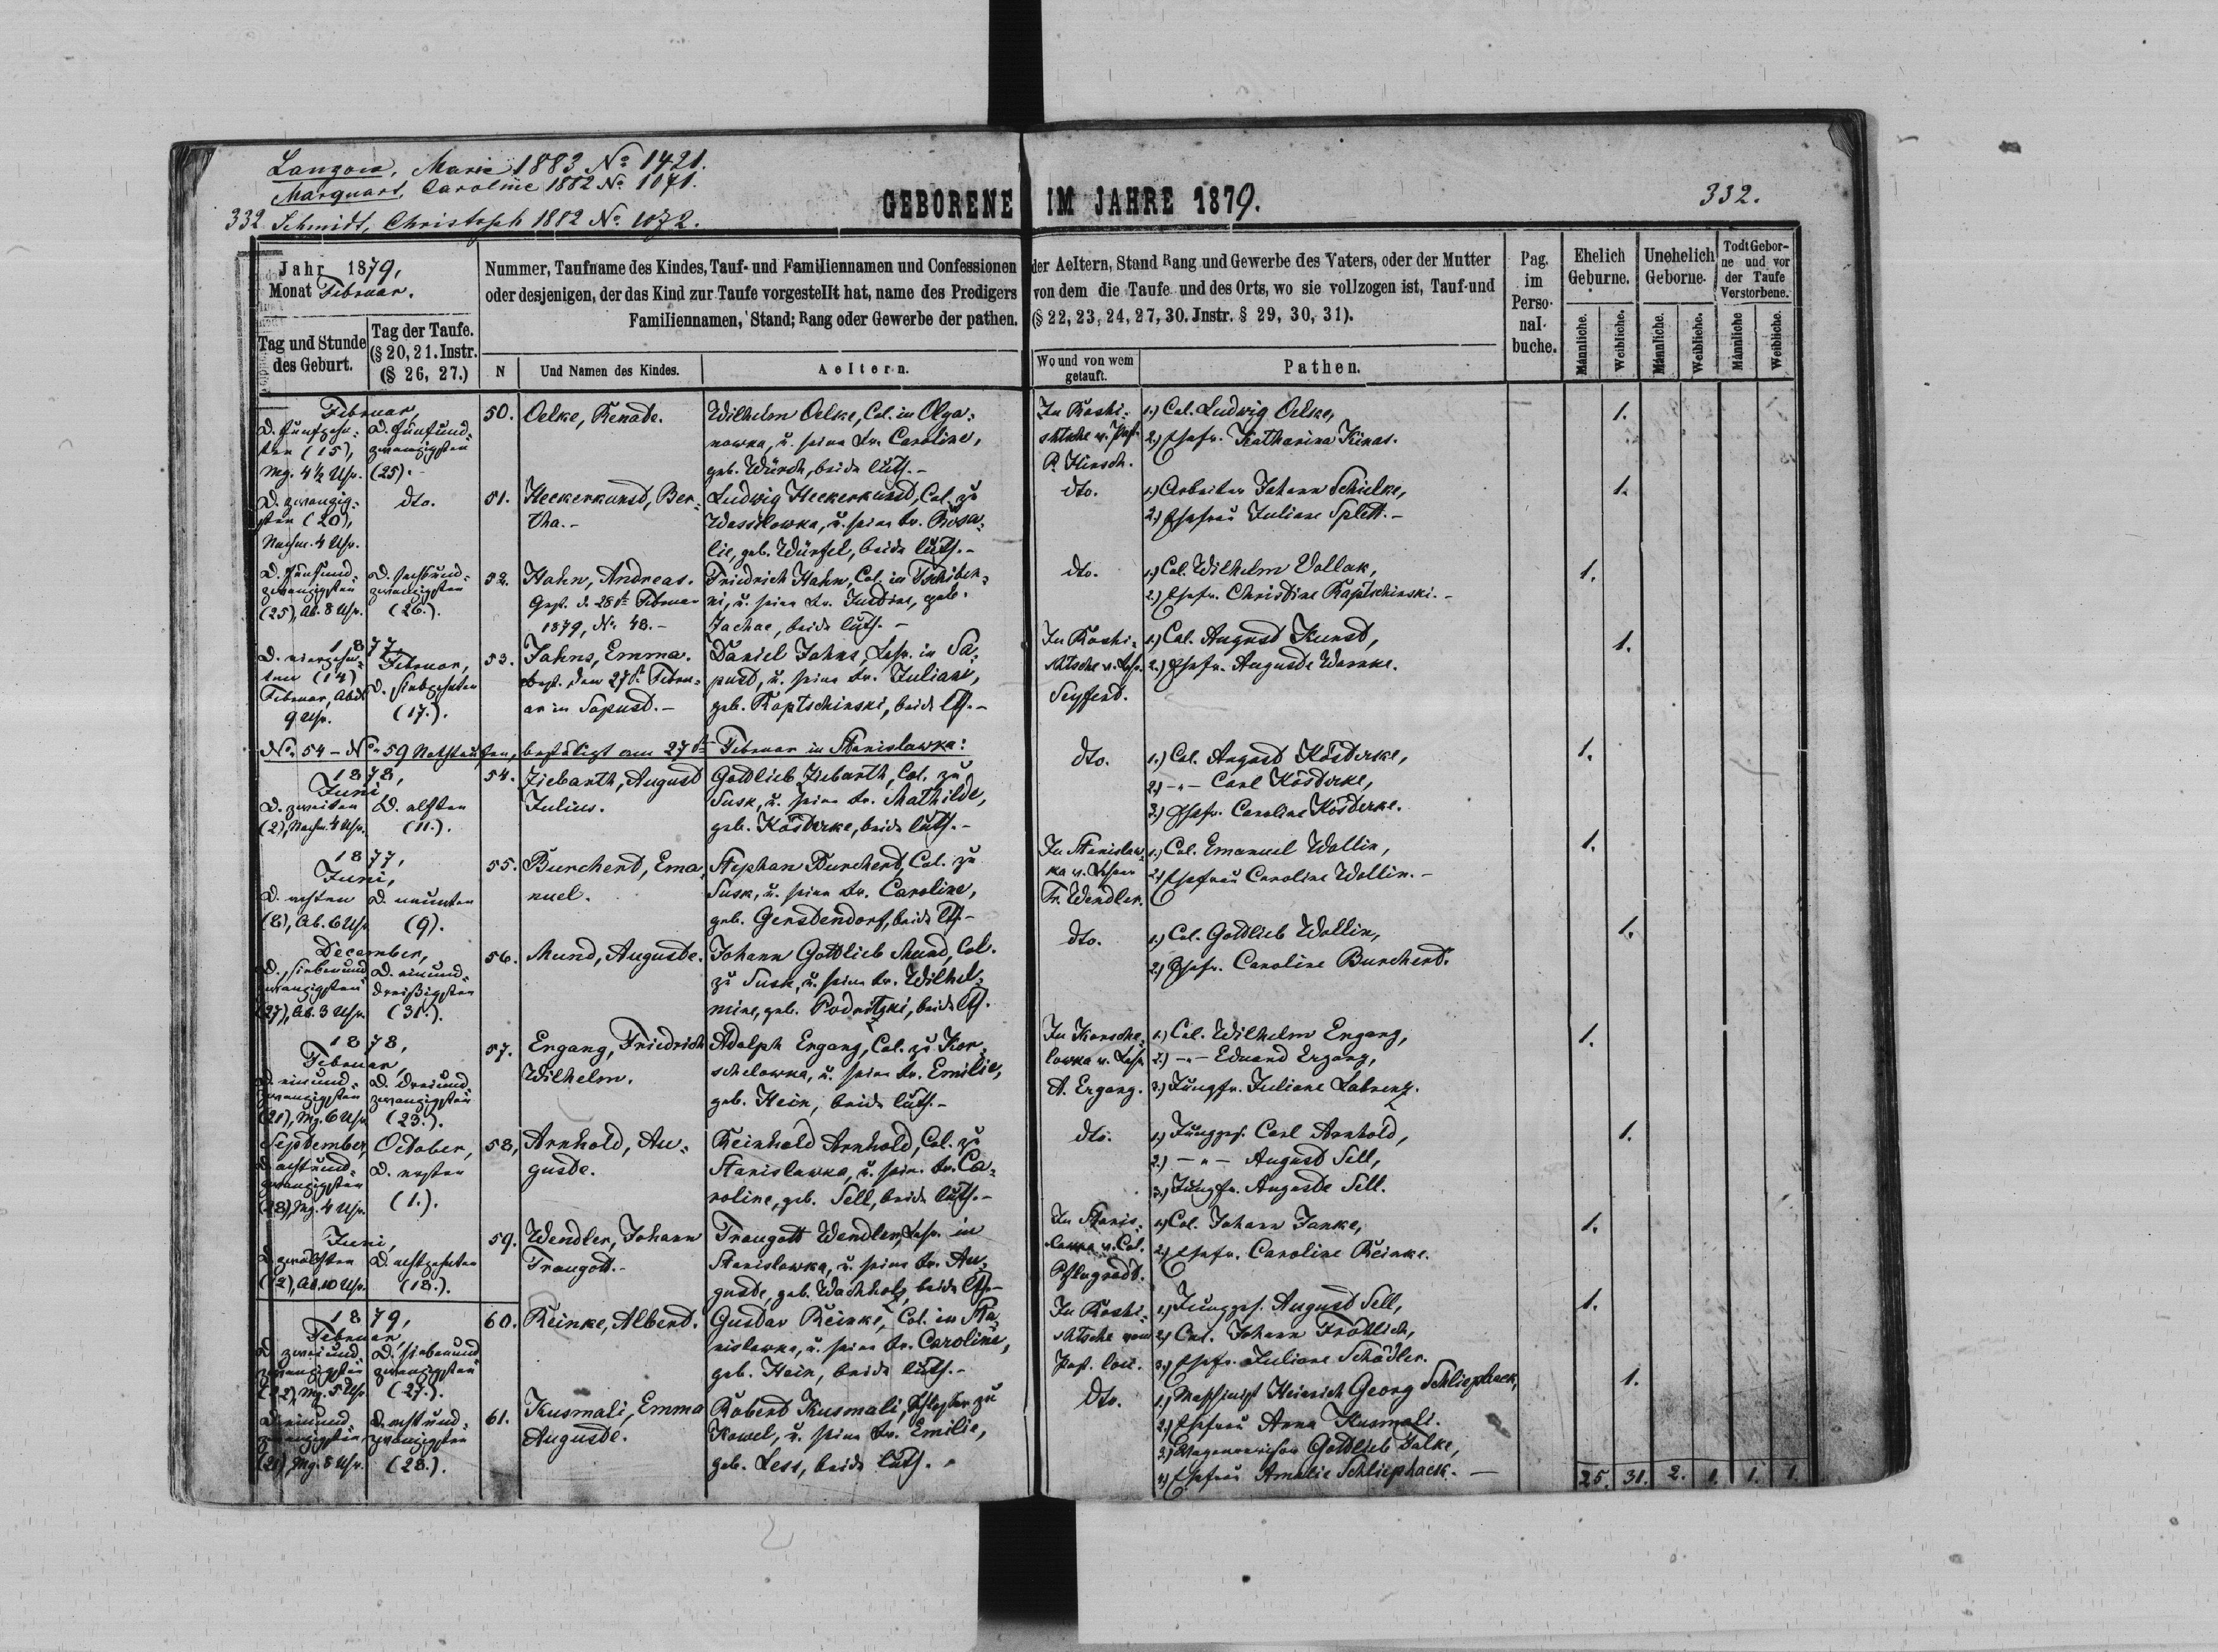 Langova, Marie 1883 No 1421.
Marquart, Caroline 1882 No 1071.
332. Schmidt, Christoph 1882 No 1072.
GEBORENE IM JAHRE 1879.
332.
Jahr 1879,
Monat Februar.
Tag und Stunde des Geburt.
Tag der Taufe.
(§ 20, 21. Instr.
(§ 26, 27.)
Nummer, Taufname des Kindes, Tauf- und Familiennamen und Confessionen der Aeltern, Stand Rang und Gewerbe des Vaters, oder der Mutter
oder desjenigen, der das Kind zur Taufe vorgestellt hat, name des Predigers von dem die Taufe und des Orts, wo sie vollzogen ist, Tauf-und
Familiennamen, Stand; Rang oder Gewerbe der pathen. (§ 22, 23, 24, 27, 30. Jnstr. § 29, 30, 31).
N
Und Namen des Kindes.
Aeltern.
Wo und von wem
getauft.
Pathen.
Pag.
im
Perso-
nal-
buche.
Ehelich
Geburne.
Unehelich
Geborne.
Todt Gebor-
ne und vor
der Taufe
Verstorbene.
Männliche.
Weibliche.
Männliche.
Weibliche.
Männliche
Weibliche.
Februar,
D. fünfzehn-
ten (15),
Mg. 4½ Uhr.
D. fünfund-
zwanzigsten
(25).-
50.
Oelke, Renate.
Wilhelm Oelke, Col. in Olga-
nowka, u. seine Fr. Caroline,
geb. Würch, beide luth.-
In Roshi-
schtsche v. Past.
P. Hirsch.
1.) Col. Ludwig Oelke,
2.) Ehefr. Katharina Kinas.
1.
D. zwanzig-
sten (20),
Nachm. 4 Uhr.
dto.
51.
Heckerkunst, Ber-
tha.-
Ludwig Heckerkunst, Col. zu
Wassilowka, u. seine Fr. Rosa-
lie, geb. Würfel, beide luth.-
dto.
1.) Arbeiter Johann Schielke,
2.) Ehefrau Juliane Splett.-
1.
D. fünfund-
zwanzigsten
(25), Ab. 8 Uhr.
D. sechsund-
zwanzigsten
(26.).
52.
Hahn, Andreas.
Gest. d. 28t Februar
1879, No 48.-
Friedrich Hahn, Col. in Tschiben-
ni, u. seine Fr. Justine, geb.
Zachae, beide luth.-
dto.
1.) Col. Wilhelm Vollak,
2.) Ehefr. Christine Raptschinski.-
1.
1877,
D. vierzehn-
ten (14)
Februar, Abds
9 Uhr.
Februar,
D. siebzehnten
(17.).
53.
Jahns, Emma.
best. den 27t Febru-
ar in Sapust.-
Daniel Jahns, Lehr. in Sa-
pust, u. seine Fr. Juliane,
geb. Raptschinski, beide lth.-
In Roshi-
schtsche v. Lehr.
Seyferd.
1.) Col. August Kunst,
2.) Ehefr. Auguste Warnke.
1.
No 54 - No 59 Nothtaufen, bestätigt am 27t Februar in Stanislawka:
1878,
Juni,
D. zweiten
(2), Nachm. 4 Uhr.
D. elften
(11.).
54.
Ziebarth, August
Julius.
Gottlieb Ziebarth, Col. zu
Susk, u. seine Fr. Mathilde,
geb. Kösterke, beide luth.-
dto.
1.) Col. August Kösterke,
2.) -"- Carl Kösterke,
3.) Ehefr. Caroline Kösterke.
1.
1877,
Juni,
D. achten
(8), Ab. 6 Uhr
D. neunten
(9).
55.
Burchert, Ema-
nuel.
Stephan Burchert, Col. zu
Susk, u. seine Fr. Caroline,
geb. Gerstendorf, beide lth.-
In Stanislaw-
ka v. Lehrer
Tr. Wendler.
1.) Col. Emanuel Wollin,
2.) Ehefrau Caroline Wollin.-
1.
December,
D. siebenund-
zwanzigsten
(27), Ab. 3 Uhr.
D. einund-
dreißigsten
(31.).
56.
Mund, Auguste.
Johann Gottlieb Mund, Col.
zu Susk, u. seine Fr. Wilhel-
mine, geb. Podritzki, beide lth.
dto.
1.) Col. Gottlieb Wollin,
2.) Ehefr. Caroline Burchert.
1.
1878,
Februar,
D. einund-
zwanzigsten
(21), Mg. 6 Uhr.
D. dreiund-
zwanzigsten
(23.).
57.
Ergang, Friedrich
Wilhelm.
Adolph Ergang, Col. zu Kor-
schelowka, u. seine Fr. Emilie,
geb. Hein, beide luth.-
In Korsche-
lowka v. Lehr.
A. Ergang.
1.) Col. Wilhelm Ergang,
2.) -"- Eduard Ergang,
3.) Jungfr. Juliane Labrenz.
1.
September,
D. achtund-
zwanzigsten
(28), Mg. 4 Uhr.
October,
D. ersten
(1.).
58,
Arnhold, Au-
guste.
Reinhold Arnhold, Col. zu
Stanislawka, u. seine Fr. Ca-
roline, geb. Sell, beide luth.-
dto.
1.) Junggs. Carl Arnhold,
2.) -"- August Sell,
3.) Jungfr. Auguste Sell.
1.
Juni,
D. zwölften
(12), Ab. 10 Uhr.
D. achtzehnten
(18.).
59.
Wendler, Johann
Traugott.-
Traugott Wendler, Lehr. in
Stanislawka, u. seine Fr. Au-
guste, geb. Wachholz, beide lth.-
In Stanis-
lawka v. Col.
Pflugradt.
1.) Col. Johann Janke,
2.) Ehefr. Caroline Reinke.
1.
1879,
Februar,
D. zweiund-
zwanzigsten
(22), Mg. 5 Uhr
D. siebenund
zwanzigsten
(27.).
60.
Reinke, Albert.
Gustav Reinke, Col. in Sta-
nislawka, u. seine Fr. Caroline,
geb. Hein, beide luth.-
In Roshi-
schtsche vom
Past. loci.
1.) Junggs. August Sell,
2.) Col. Johann Fröhlich,
3.) Ehefr. Juliane Schädler.
1.
D. einund-
zwanzigsten
(21), Mg. 8 Uhr.
D. achtund-
zwanzigsten
(28.).
61.
Kusmali, Emma
Auguste.
Robert Kusmali, zu
Kowel, u. seine Fr. Emilie,
geb. Less, beide luth.
dto.
1.) Maschinist Heinrich Georg Schliephack,
2.) Ehefrau Anna Kusmali.
3.) Gottlieb Falke,
4.) Ehefrau Amalie Schliephack.-
1.
25. 31. 2. 1. 1. 1.